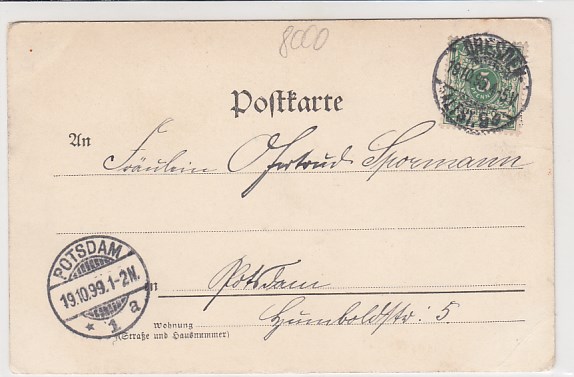 8000
DRESDEN
5
Postkarte
An
Fräulein Gertrud Spormann
POTSDAM
19.10.99.1-2N.
* 1 a
in Potsdam
Humboldtstr: 5.
Wohnung
(Straße und Hausnummer)